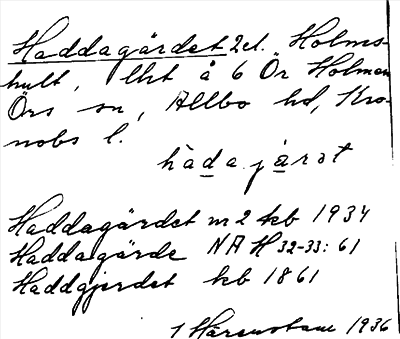 Haddagärdet 2 el. Holms-
hult, lht å 6 Ör Holmen
Örs sn, Allbo hd, Kro-
nobs l.
hàda jàrət
Haddagärdet m 2 kb 1934
Haddagärde NAH 32-33: 61
Haddgjerdet kb 1861
1936